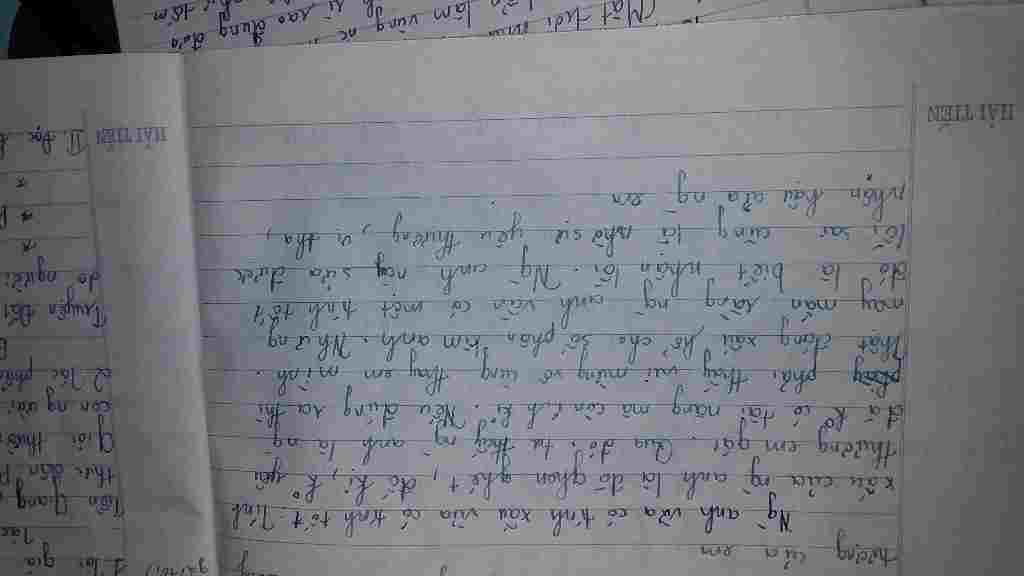 tượng của em
Ng anh vừa có tính xấu vừa có tính tốt. Tính
xấu của ng anh là đã ghen ghét, đố kị, k yêu
thương em gái. Qua đó, ta thấy ng anh là ng
đã k có tài năng mà còn ích kỉ. Nếu đúng ra thì
phải thấy vui mừng vô cùng thay em mình.
Thật đáng xấu hổ cho số phận làm anh. Nhưng
may mắn rằng ng anh vẫn có một tính tốt
đó là biết nhận lỗi. Ng anh này sửa được
lỗi sai cũng là nhờ sự yêu thương, vị tha,
nhân hậu của ng em.
HẢI TIẾN
HẢI TIẾN
Tác
Tiền Giang
thức dân
Giới thiệu
con người
2) Tác phẩm
Truyện
do người
II. Đọc